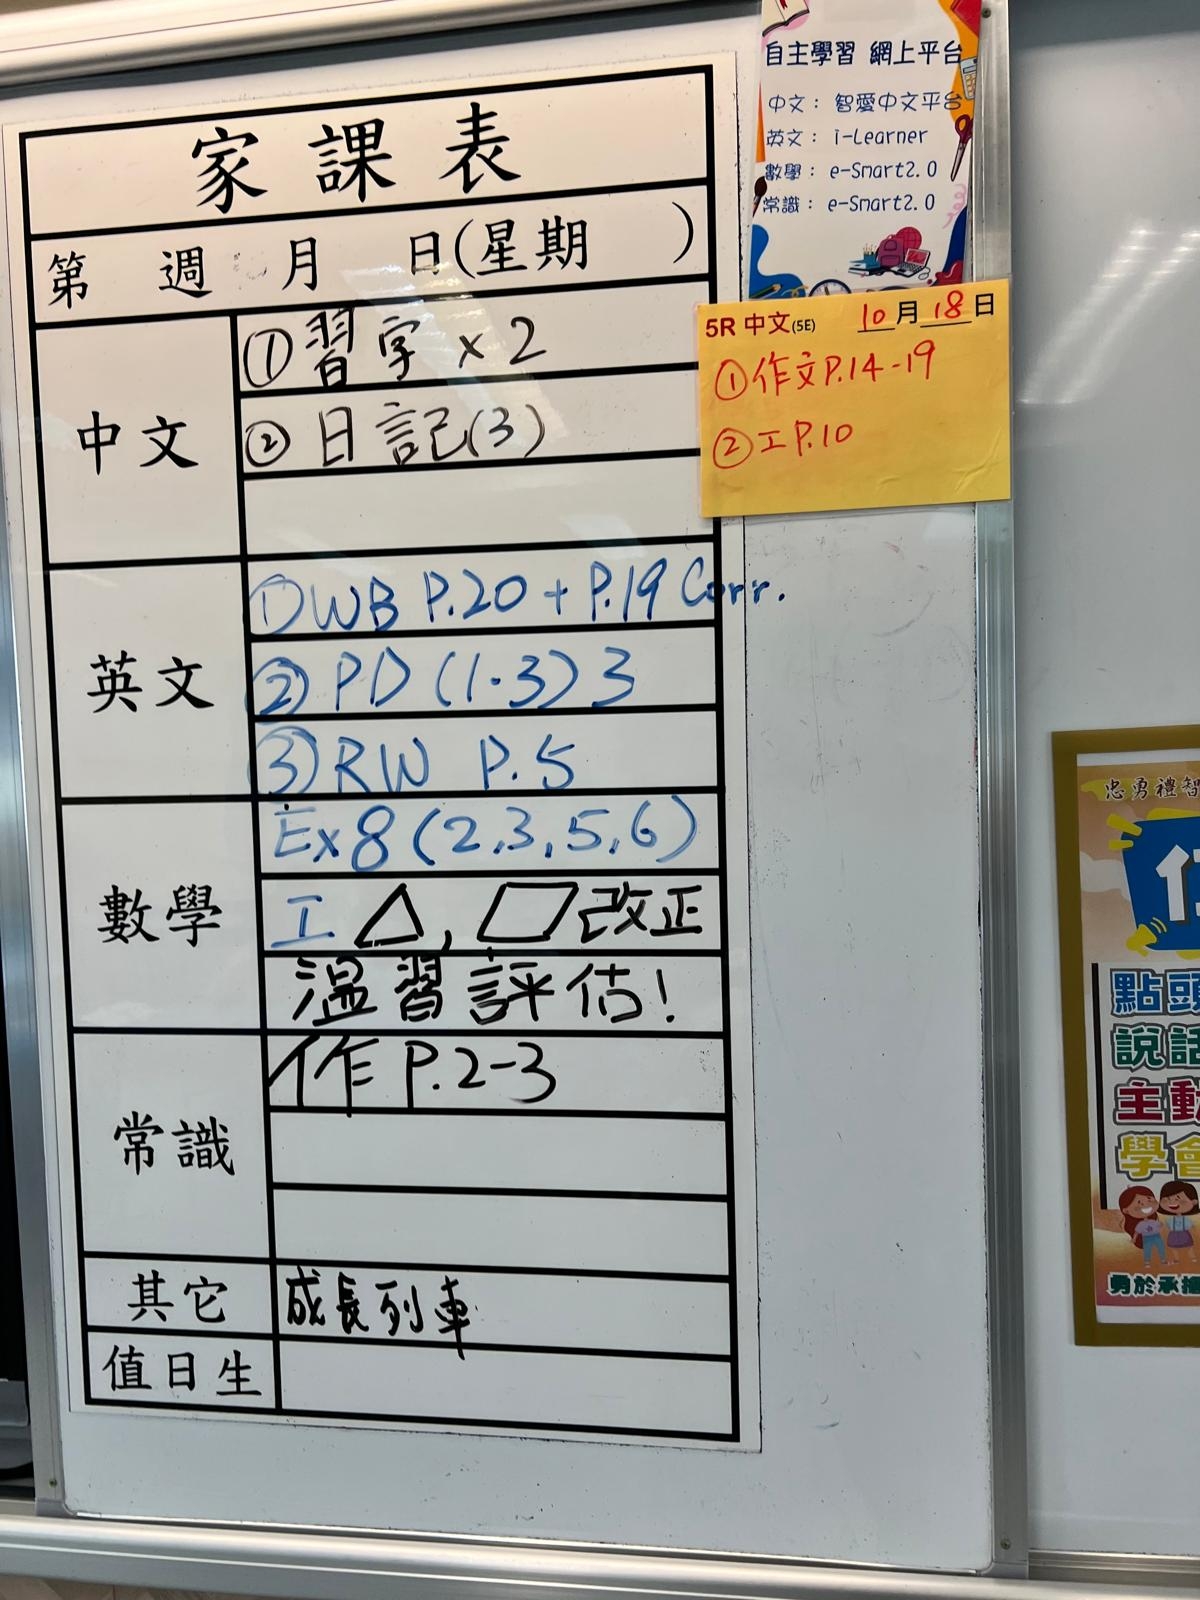 家課表
第 週 月 日(星期 )
中文
①習字 x 2
②日記(3)
英文
①WB P.20 + P.19 Corr.
②PD (1-3) 3
③RW P.5
數學
Ex 8 (2,3,5,6)
工 △, ▱ 改正
溫習評估!
常識
作 P.2-3
其它
成長列車
值日生
自主學習 網上平台
中文: 智愛中文平台
英文: i-Learner
數學: e-Smart2.0
常識: e-Smart2.0
5R 中文(5E) 10月18日
①作文P.14-19
②工P.10
忠勇禮智
點頭
說話
主動
學會
勇於承擔